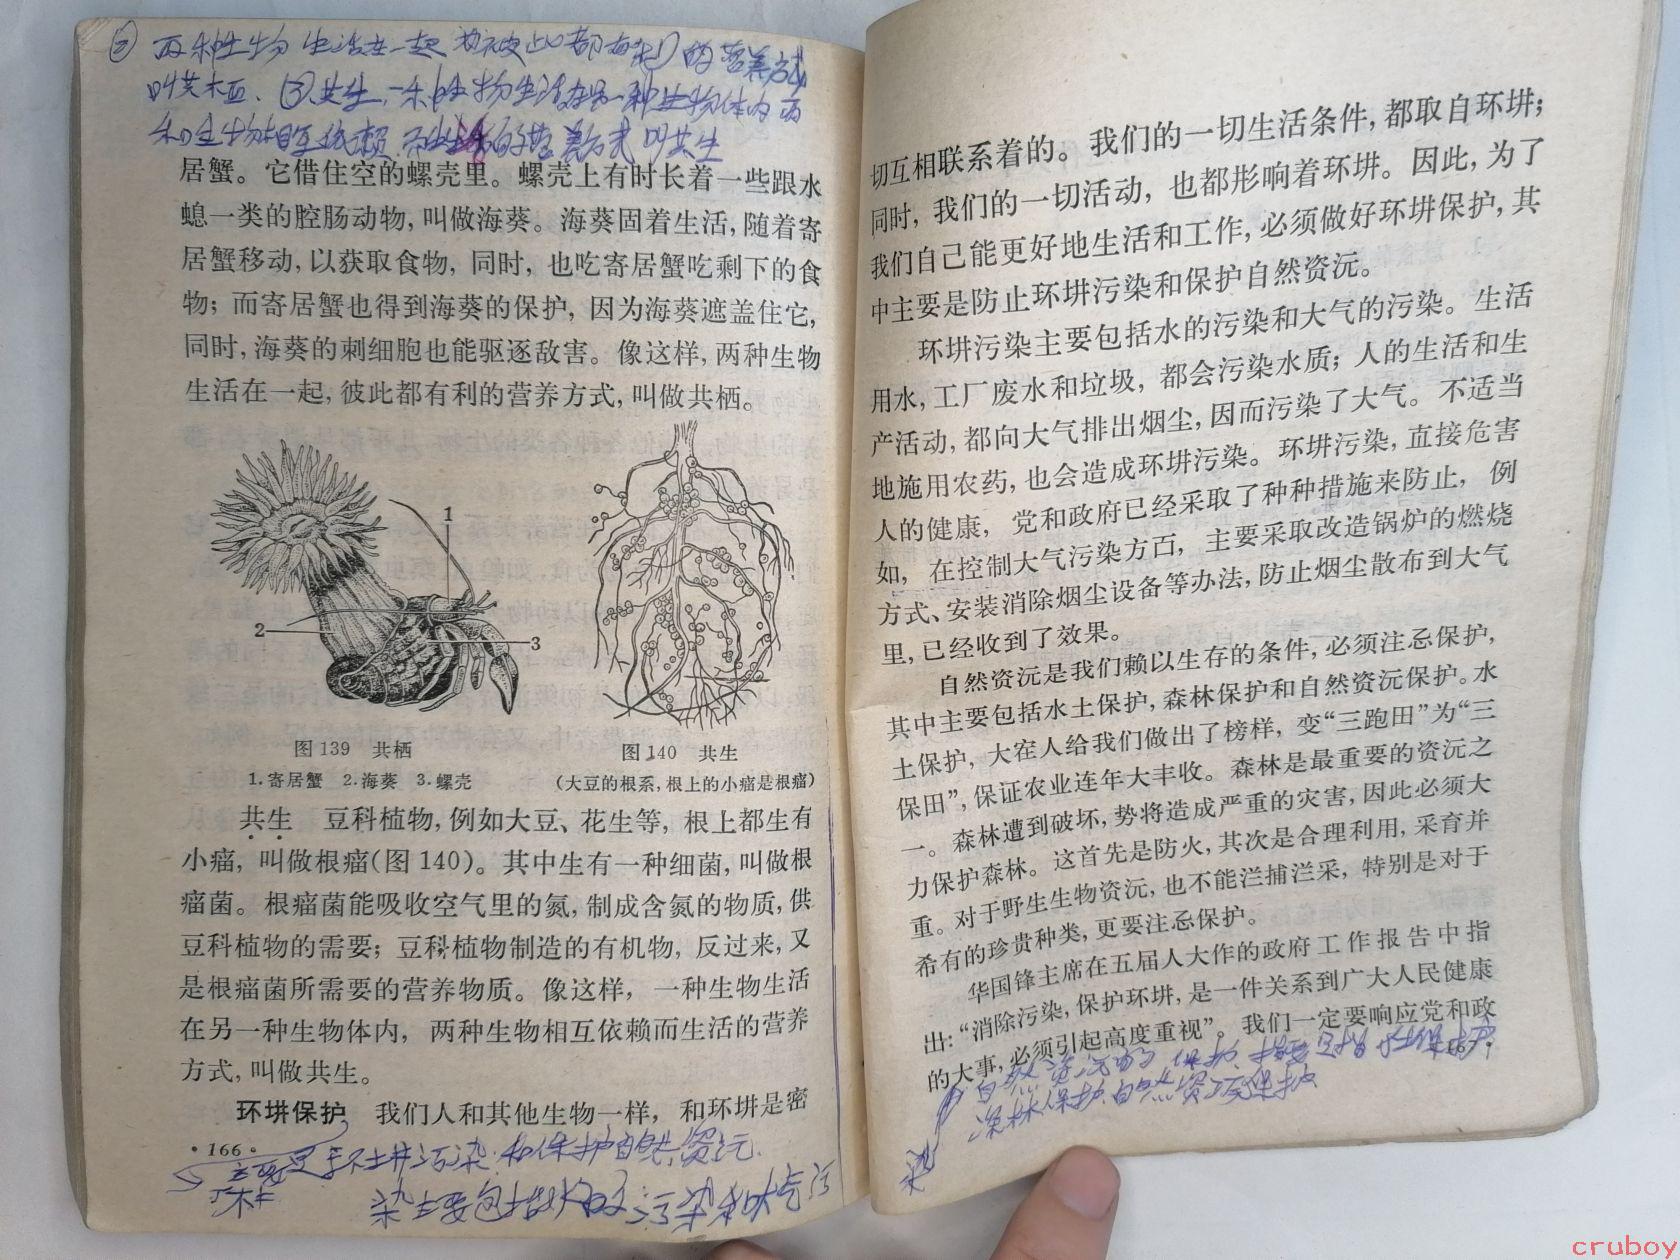 ② 两种生物生活在一起 彼此都有利的营养方式
叫共栖、③共生，一种生物生活在另一种生物体内两
种生物相互依赖 而生活的营养方式 叫共生
居蟹。它借住空的螺壳里。螺壳上有时长着一些跟水
螅一类的腔肠动物，叫做海葵。海葵固着生活，随着寄
居蟹移动，以获取食物，同时，也吃寄居蟹吃剩下的食
物；而寄居蟹也得到海葵的保护，因为海葵遮盖住它，
同时，海葵的刺细胞也能驱逐敌害。像这样，两种生物
生活在一起，彼此都有利的营养方式，叫做共栖。
1
2
3
图139 共栖
1.寄居蟹 2.海葵 3.螺壳
图140 共生
（大豆的根系，根上的小瘤是根瘤）
共生 豆科植物，例如大豆、花生等，根上都生有
小瘤，叫做根瘤（图140）。其中生有一种细菌，叫做根
瘤菌。根瘤菌能吸收空气里的氮，制成含氮的物质，供
豆科植物的需要；豆科植物制造的有机物，反过来，又
是根瘤菌所需要的营养物质。像这样，一种生物生活
在另一种生物体内，两种生物相互依赖而生活的营养
方式，叫做共生。
环境保护 我们人和其他生物一样，和环境是密
·166·
主要是环境污染和保护自然资沅
染主要包括水的污染和大气污
切互相联系着的。我们的一切生活条件，都取自环境；
同时，我们的一切活动，也都形响着环境。因此，为了
我们自己能更好地生活和工作，必须做好环境保护，其
中主要是防止环境污染和保护自然资沅。
环境污染主要包括水的污染和大气的污染。生活
用水，工厂废水和垃圾，都会污染水质；人的生活和生
产活动，都向大气排出烟尘，因而污染了大气。不适当
地施用农药，也会造成环境污染。环境污染，直接危害
人的健康，党和政府已经采取了种种措施来防止，例
如，在控制大气污染方面，主要采取改造锅炉的燃烧
方式、安装消除烟尘设备等办法，防止烟尘散布到大气
里，已经收到了效果。
自然资沅是我们赖以生存的条件，必须注意保护，
其中主要包括水土保护，森林保护和自然资沅保护。水
土保护，大寨人给我们做出了榜样，变“三跑田”为“三
保田”，保证农业连年大丰收。森林是最重要的资沅之
一。森林遭到破坏，势将造成严重的灾害，因此必须大
力保护森林。这首先是防火，其次是合理利用，采育并
重。对于野生生物资沅，也不能滥捕滥采，特别是对于
希有的珍贵种类，更要注意保护。
华国锋主席在五届人大作的政府工作报告中指
出：“消除污染，保护环境，是一件关系到广大人民健康
的大事，必须引起高度重视”。我们一定要响应党和政
·167·
自然资沅的保护 主要包括水土保护
深林保护 自然资沅保护
染
cruboy